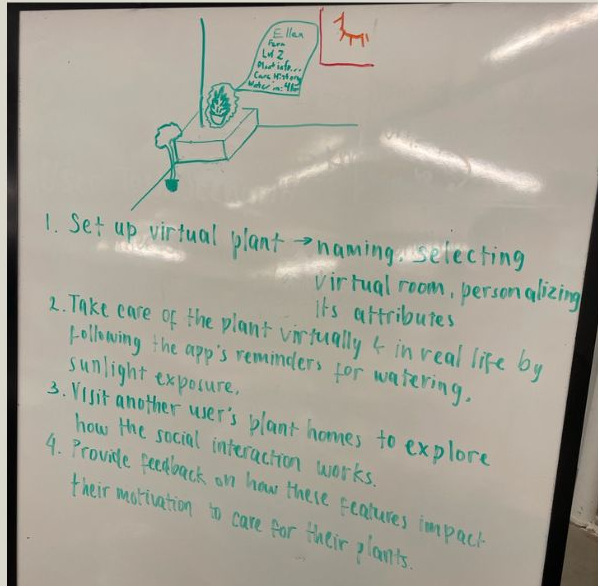 Ellen
Fern
Lvl 2
Plant info...
Care History
Water in: 4hr
1. Set up virtual plant → naming, selecting
virtual room, personalizing
its attributes
2. Take care of the plant virtually & in real life by
following the app's reminders for watering,
sunlight exposure.
3. Visit another user's plant homes to explore
how the social interaction works.
4. Provide feedback on how these features impact
their motivation to care for their plants.